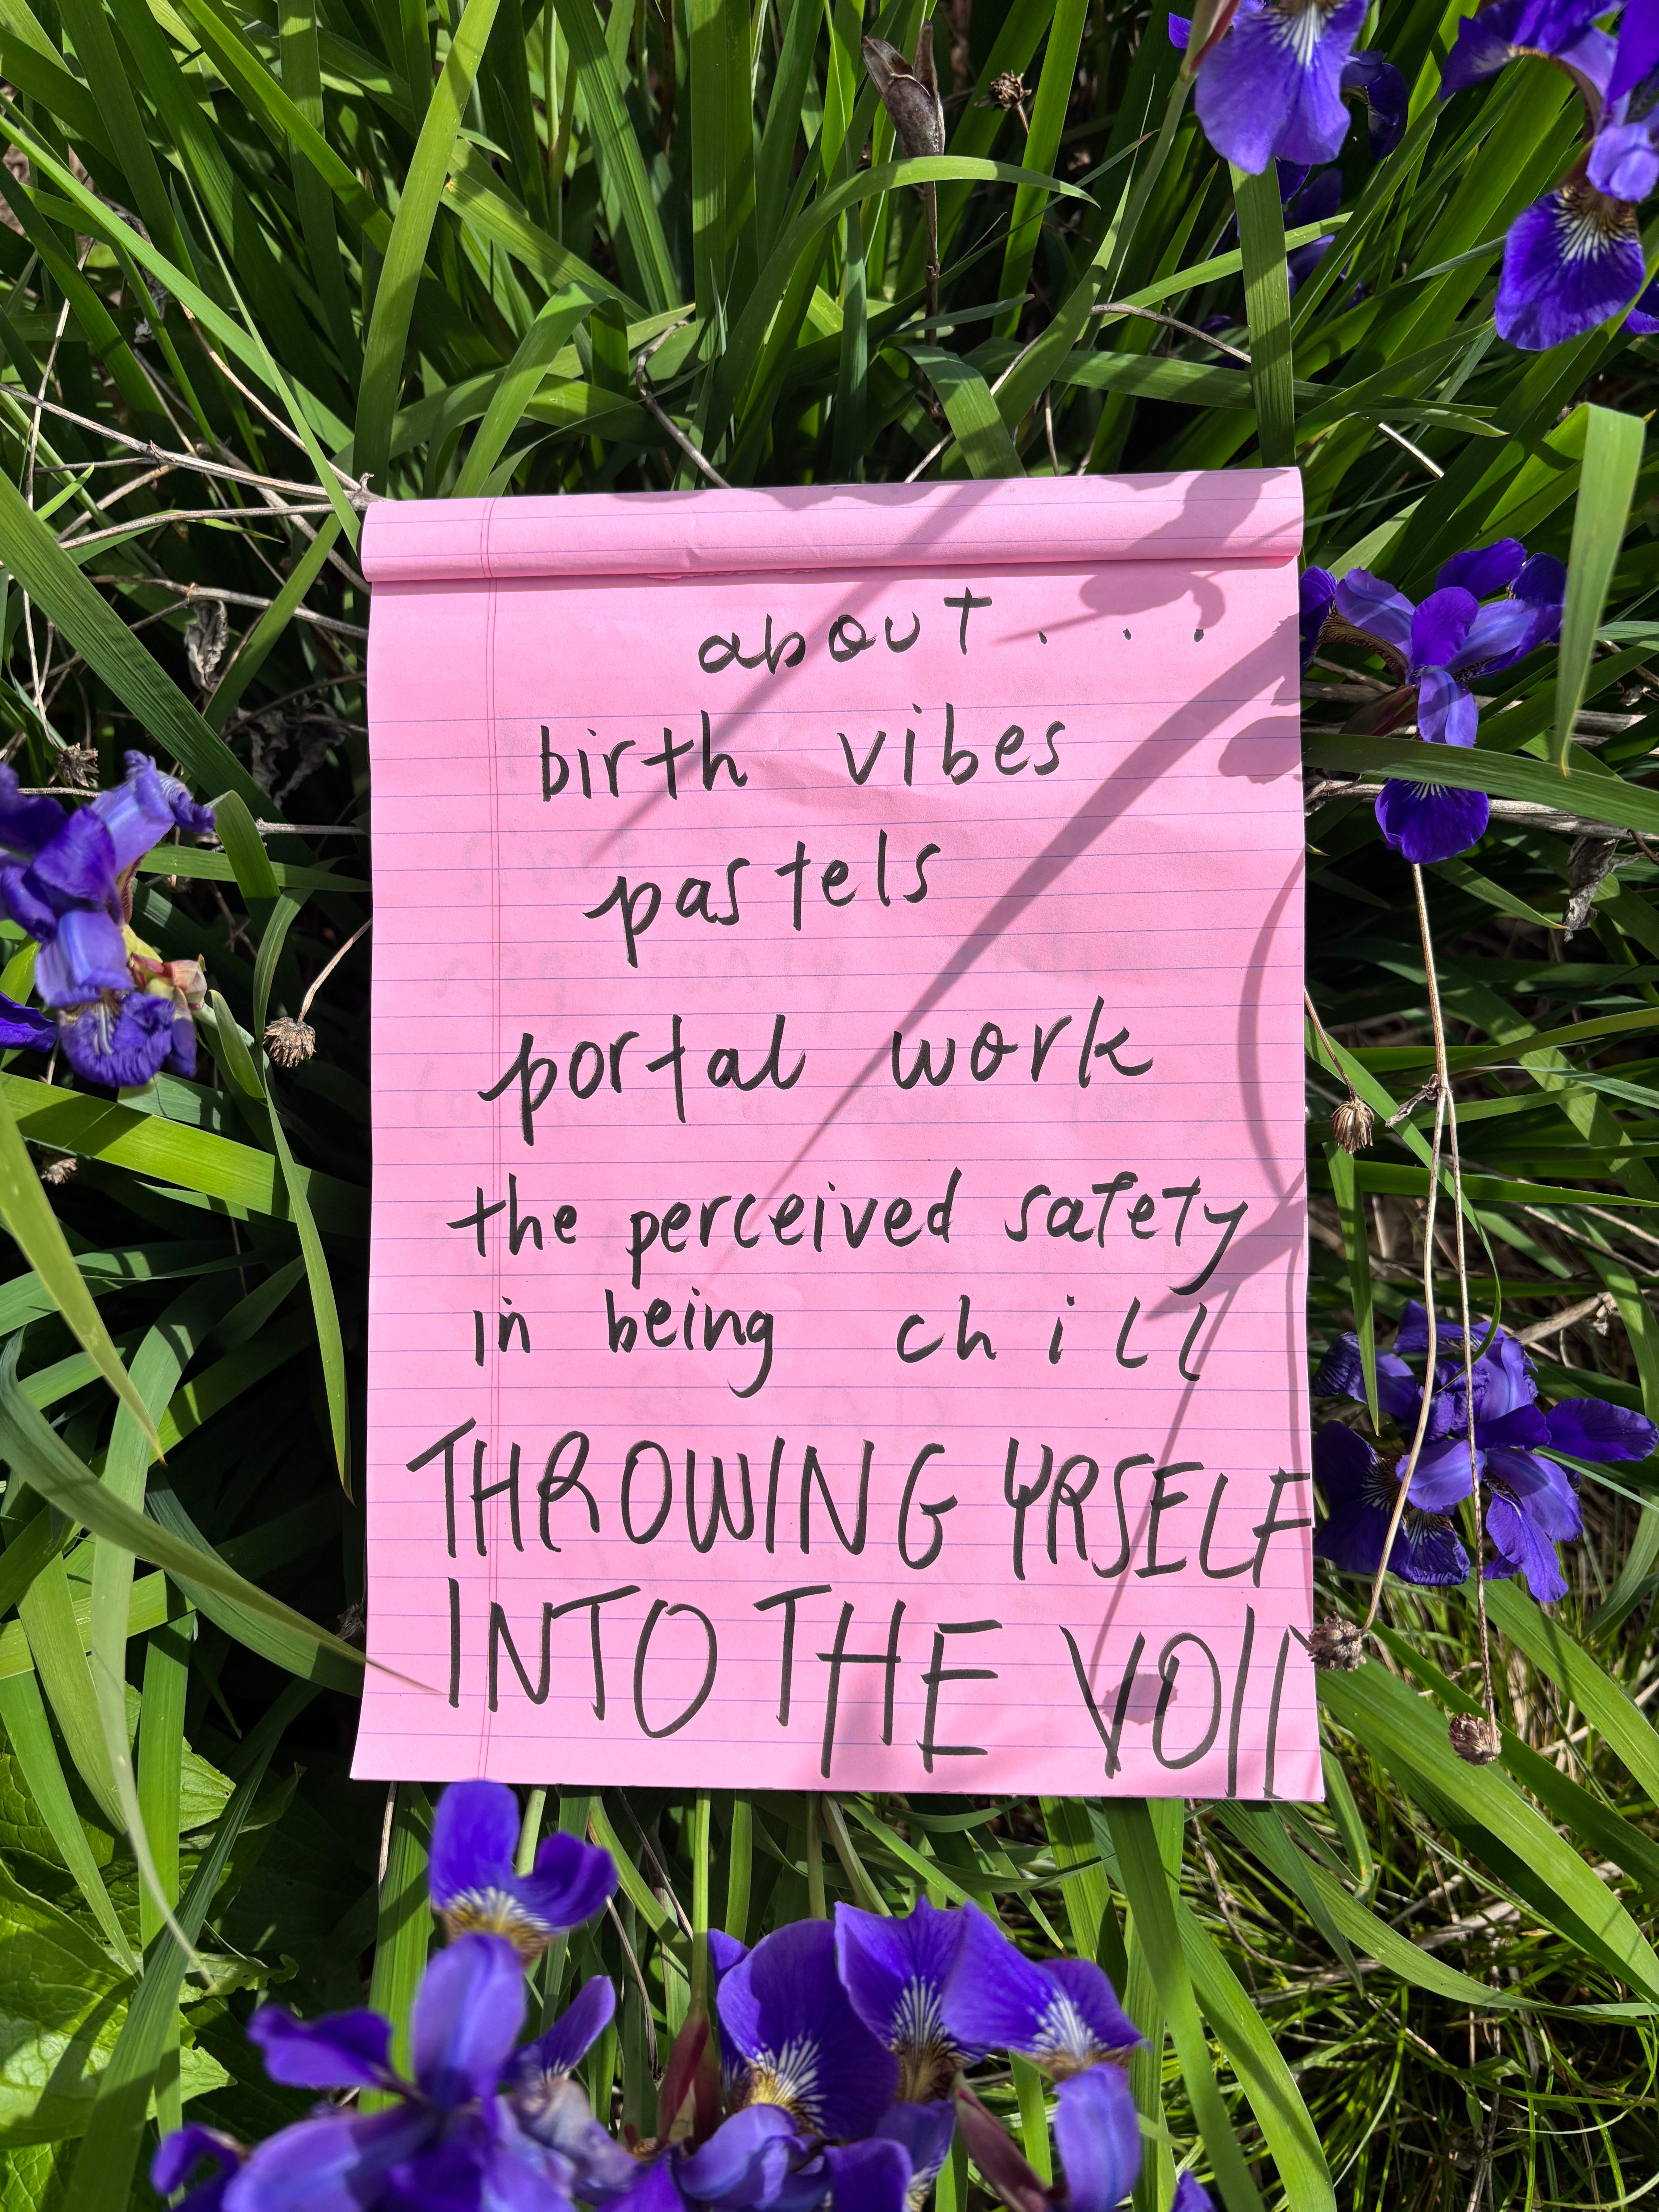 about . . .
birth vibes
pastels
portal work
the perceived safety
in being chill
THROWING YRSELF
INTO THE VOID